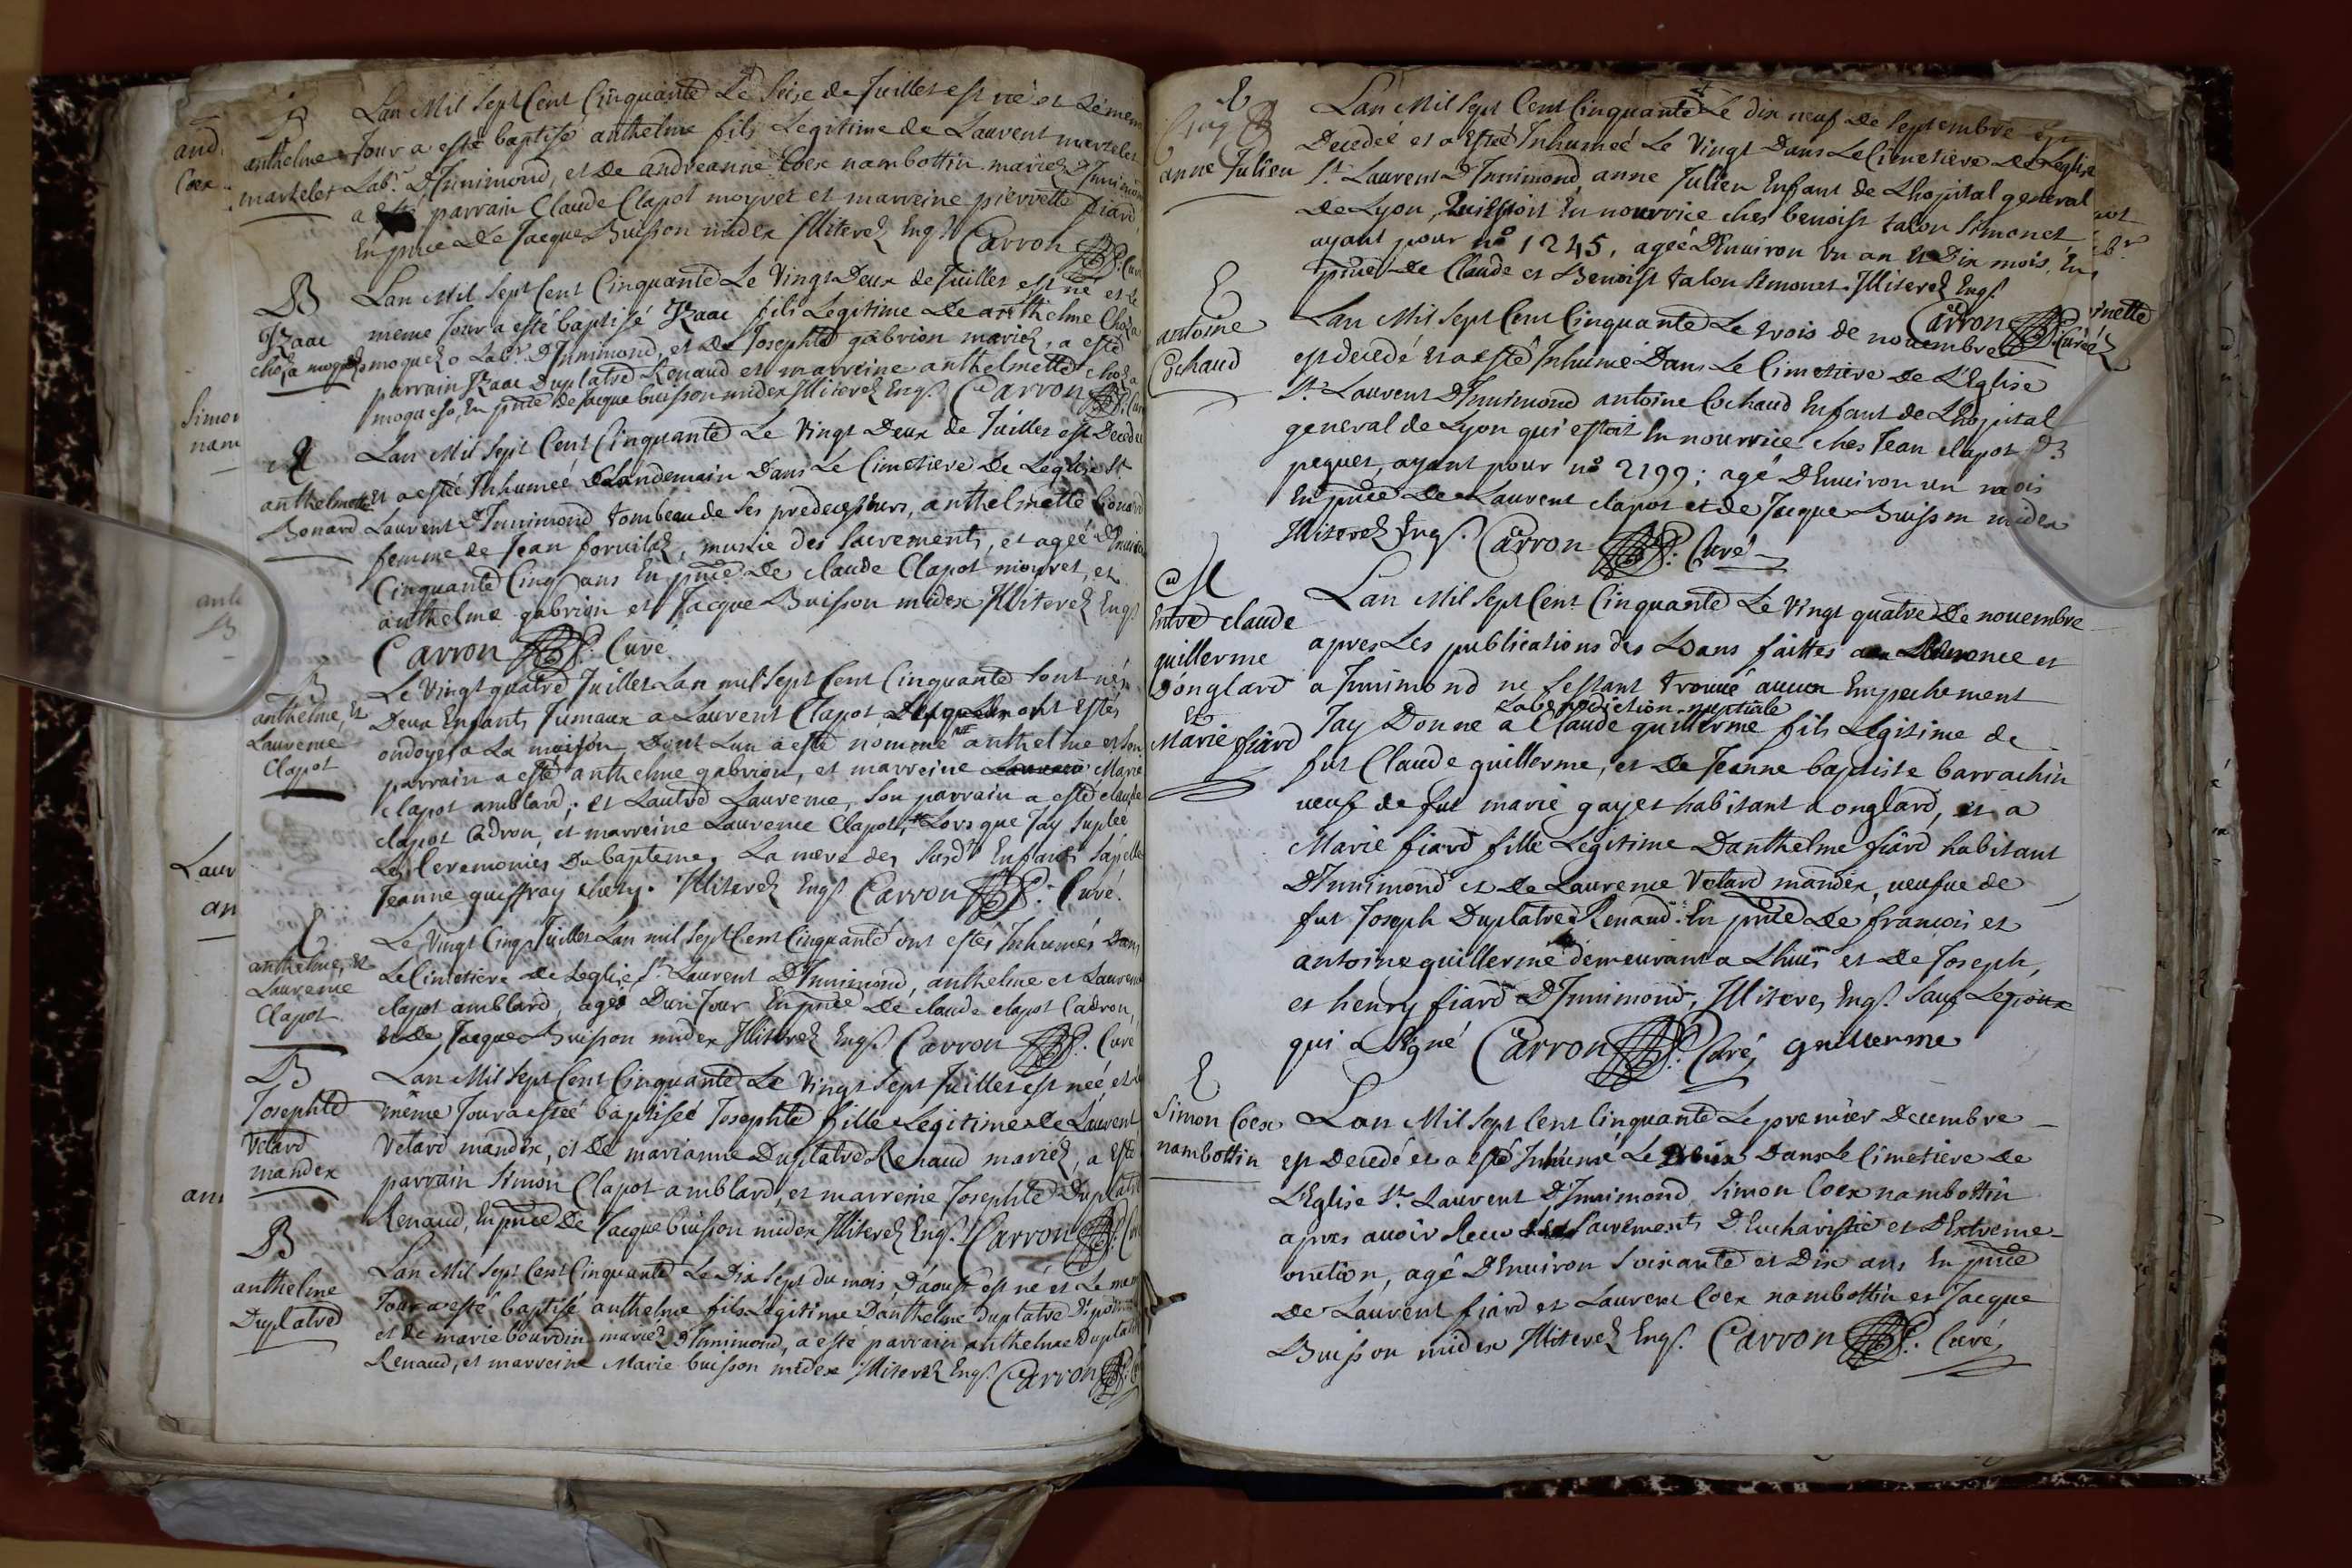 B
anthelme
marteles
Lan Mil Sept Cent Cinquante Le Seize de Juillet est né et Le mem
Jour a esté baptisé anthelme fils Legitime de Laurent marteles
Labr. D'Innimond, et de andreanne Coex nambottin mariéz D'Innimon
a esté parrain Claude Clapot moyret et marreine pierrette fiard
En pnce de Jacque Buisson midex Illiterez Enqs Carron Curé
B
Izaac
choza moquez
Lan Mil Sept Cent Cinquante Le Vingt Deux de Juillet est né et Le
meme Jour a esté baptisé Izaac fils Legitime de anthelme Choza
moquezo Labr. D'Innimond, et de Josephte gabrion mariéz, a esté
parrain Izaac Duplatre Renaud et marreine anthelmette choza
moquezo, En pnce de Jacque buisson midex Illiterez Enqs. Carron
E
anthelmette
Bonard
Lan Mil Sept Cent Cinquante Le Vingt Deux de Juillet est Decedée
et a estée Inhumée Le Landemain Dans Le Cimetiere de Leglise St
Laurent D'Innimond tombeau de ses predecesseurs, anthelmette bonard
femme de Jean , munie des Sacrements, et agée D'Environ
Cinquante Cinq ans En pnce De claude Clapot moyret, et
anthelme gabrion et Jacque Buisson midex Illiterez Enqs
Carron Curé
B
anthelme, Et
Laureme
Clapot
Le Vingt quatre Juillet Lan mil Sept Cent Cinquante Sont nés
Deux Enfants Jumaux a Laurent Clapot, ont Estés
ondoyes a La maison, Dont Lun a esté nommé anthelme et son
parrain a esté anthelme gabrion, et marreine Marie
Clapot amblard; et Lautre Laureme, Son parrain a esté claude
clapot Cadron, et marreine Laureme Clapot, Lors que Jay Suplée
Les Ceremonies Du bapteme, La mere des Susdts Enfants Sapelle
Jeanne guiffray . Illiterez Enqs Carron Curé.
E
anthelme, et
Laureme
Clapot
Le Vingt Cinq Juillet Lan mil Sept Cent Cinquante ont estés Inhumés Dans
Le Cimetiere de Leglise St. Laurent D'Innimond, anthelme et Laureme
clapot amblard, agés Dun Jour En pnce De claude clapot Cadron,
et de Jacque Buisson midex Illiterez Enqs Carron Curé
B
Josephte
Velard
mandex
Lan Mil Sept Cent Cinquante Le Vingt Sept Juillet est née et Le
même Jour a estée baptisée Josephte fille Legitime de Laurent
Velard mandex, et De marianne Duplatre Renaud mariéz, a Esté
parrain Simon Clapot amblard, et marreine Josephte Duplatre
Renaud, En pnce De Jacque buisson midex Illiterez Enqs. Carron
B
anthelme
Duplatre
Lan Mil Sept Cent Cinquante Le Dix Sept du mois D'aoust est né et Le mem
Jour a esté baptisé anthelme fils Legitime D'anthelme Duplatre
et de marie bourdin mariéz D'Innimond, a esté parrain anthelme Duplatre
Renaud, et marreine Marie buisson midex Illiterez Enqs Carron
E
anne Julien
Lan Mil Sept Cent Cinquante Le dix neuf de Septembre est
Decedée et a Estée Inhumée Le Vingt Dans Le Cimetiere de Leglise
St. Laurent D'Innimond, anne Julien Enfant de Lhopital general
de Lyon, En nourrice ches benoist talon Simonet
ayant pour no 1245, agée D'Environ un an et Dix mois, En
pnce de Claude et Benoist talon Simonet. Illiterez Enqs.
Carron Curé
E
antoine
Cochaud
Lan Mil Sept Cent Cinquante Le trois de novembre
est decedé et a esté Inhumé Dans Le Cimetiere De L'Eglise
St. Laurent D'Innimond antoine Cochaud Enfant de Lhopital
general de Lyon qui estoit En nourrice ches Jean clapot
peguet, ayant pour no 2199; agé D'Environ un mois
En pnce De Laurent clapot et de Jacque Buisson midex
Illiterez Enqs. Carron Curé
M
Entre claude
guillerme
D'onglard
Et
Marie fiard
Lan Mil Sept Cent Cinquante Le Vingt quatre De novembre
apres Les publications des Bans faittes a et
a Innimond ne Sestant trouvé aucun Empechement
La benediction nuptiale
Jay Donné a Claude guillerme fils Legitime de
fut Claude guillerme, et De Jeanne baptiste barrachin
veuf de fut marie gayet habitant a onglard, et a
Marie fiard fille Legitime Danthelme fiard habitant
D'Innimond et de Laureme Velard mandex, veufve de
fut Joseph Duplatre Renaud. En pnce De francois et
antoine guillerme demeurant a Lhuis et De Joseph,
et henry fiard D'Innimond, Illiteres Enqs. Sauf Lepoux
qui a Signé Carron Curé, guillerme
E
Simon Coex
nambottin
Lan Mil Sept Cent Cinquante Le premier Decembre
est Decedé et a esté Inhumé Le Deux Dans Le Cimetiere De
L'Eglise St. Laurent D'Innimond Simon Coex nambottin
apres avoir Receu Les Sacrements D'Eucharistie et D'Extreme-
onction, agé D'Environ Soixante et Dix ans En pnce
De Laurent fiard et Laurent Coex nambottin et Jacque
Buisson midex Illiterez Enqs. Carron Curé,